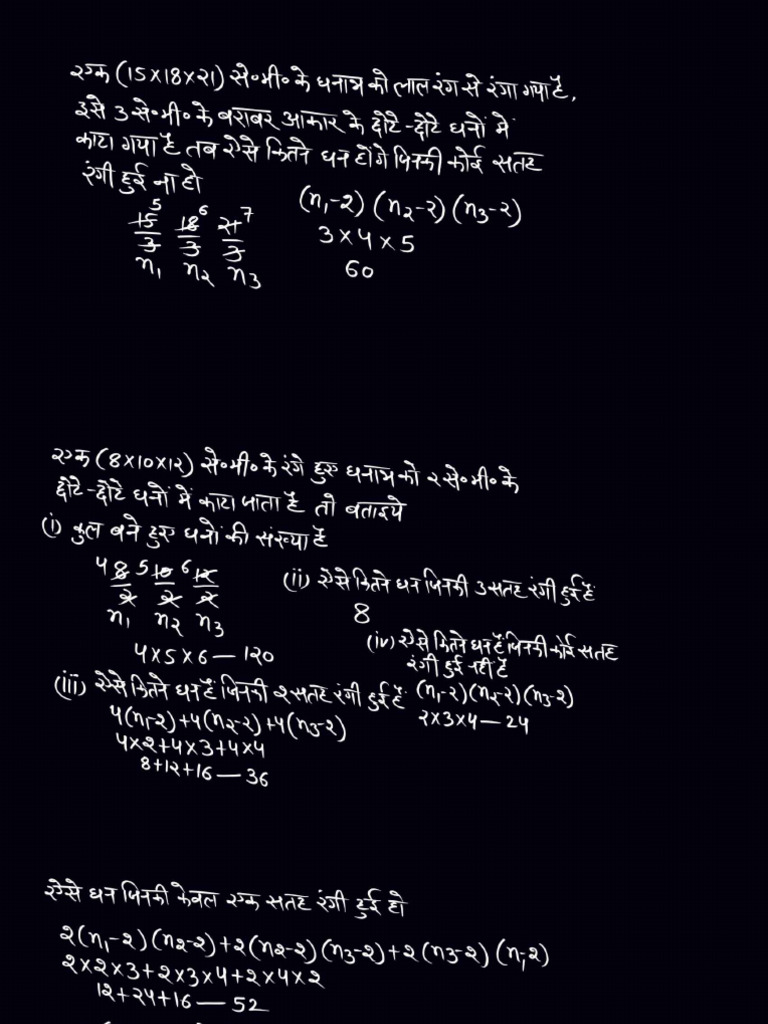 एक (15×18×21) से०मी० के घनाभ को लाल रंग से रंगा गया है,
इसे 3 से०मी० के बराबर आकार के छोटे-छोटे घनों में
काटा गया है तब ऐसे कितने घन होंगे जिनकी कोई सतह
रंगी हुई ना हो
15 5 18 6 21 7 (n₁-2) (n₂-2) (n₃-2)
3 3 3 3×4×5
n₁ n₂ n₃ 60
एक (8×10×12) से०मी० के रंगे हुए घनाभ को 2 से०मी० के
छोटे-छोटे घनों में काटा जाता है तो बताइये
(i) कुल बने हुए घनों की संख्या है
4 8 5 10 6 12
2 2 2
n₁ n₂ n₃
4×5×6 — 120
(ii) ऐसे कितने घन जिनकी 3 सतह रंगी हुई हैं
8
(iii) ऐसे कितने घन हैं जिनकी 2 सतह रंगी हुई हैं
4(n₁-2)+4(n₂-2)+4(n₃-2)
4×2+4×3+4×4
8+12+16 — 36
(iv) ऐसे कितने घन हैं जिनकी कोई सतह
रंगी हुई नहीं है
(n₁-2)(n₂-2)(n₃-2)
2×3×4 — 24
ऐसे घन जिनकी केवल एक सतह रंगी हुई हो
2(n₁-2)(n₂-2)+2(n₂-2)(n₃-2)+2(n₃-2)(n₁-2)
2×2×3+2×3×4+2×4×2
12+24+16 — 52